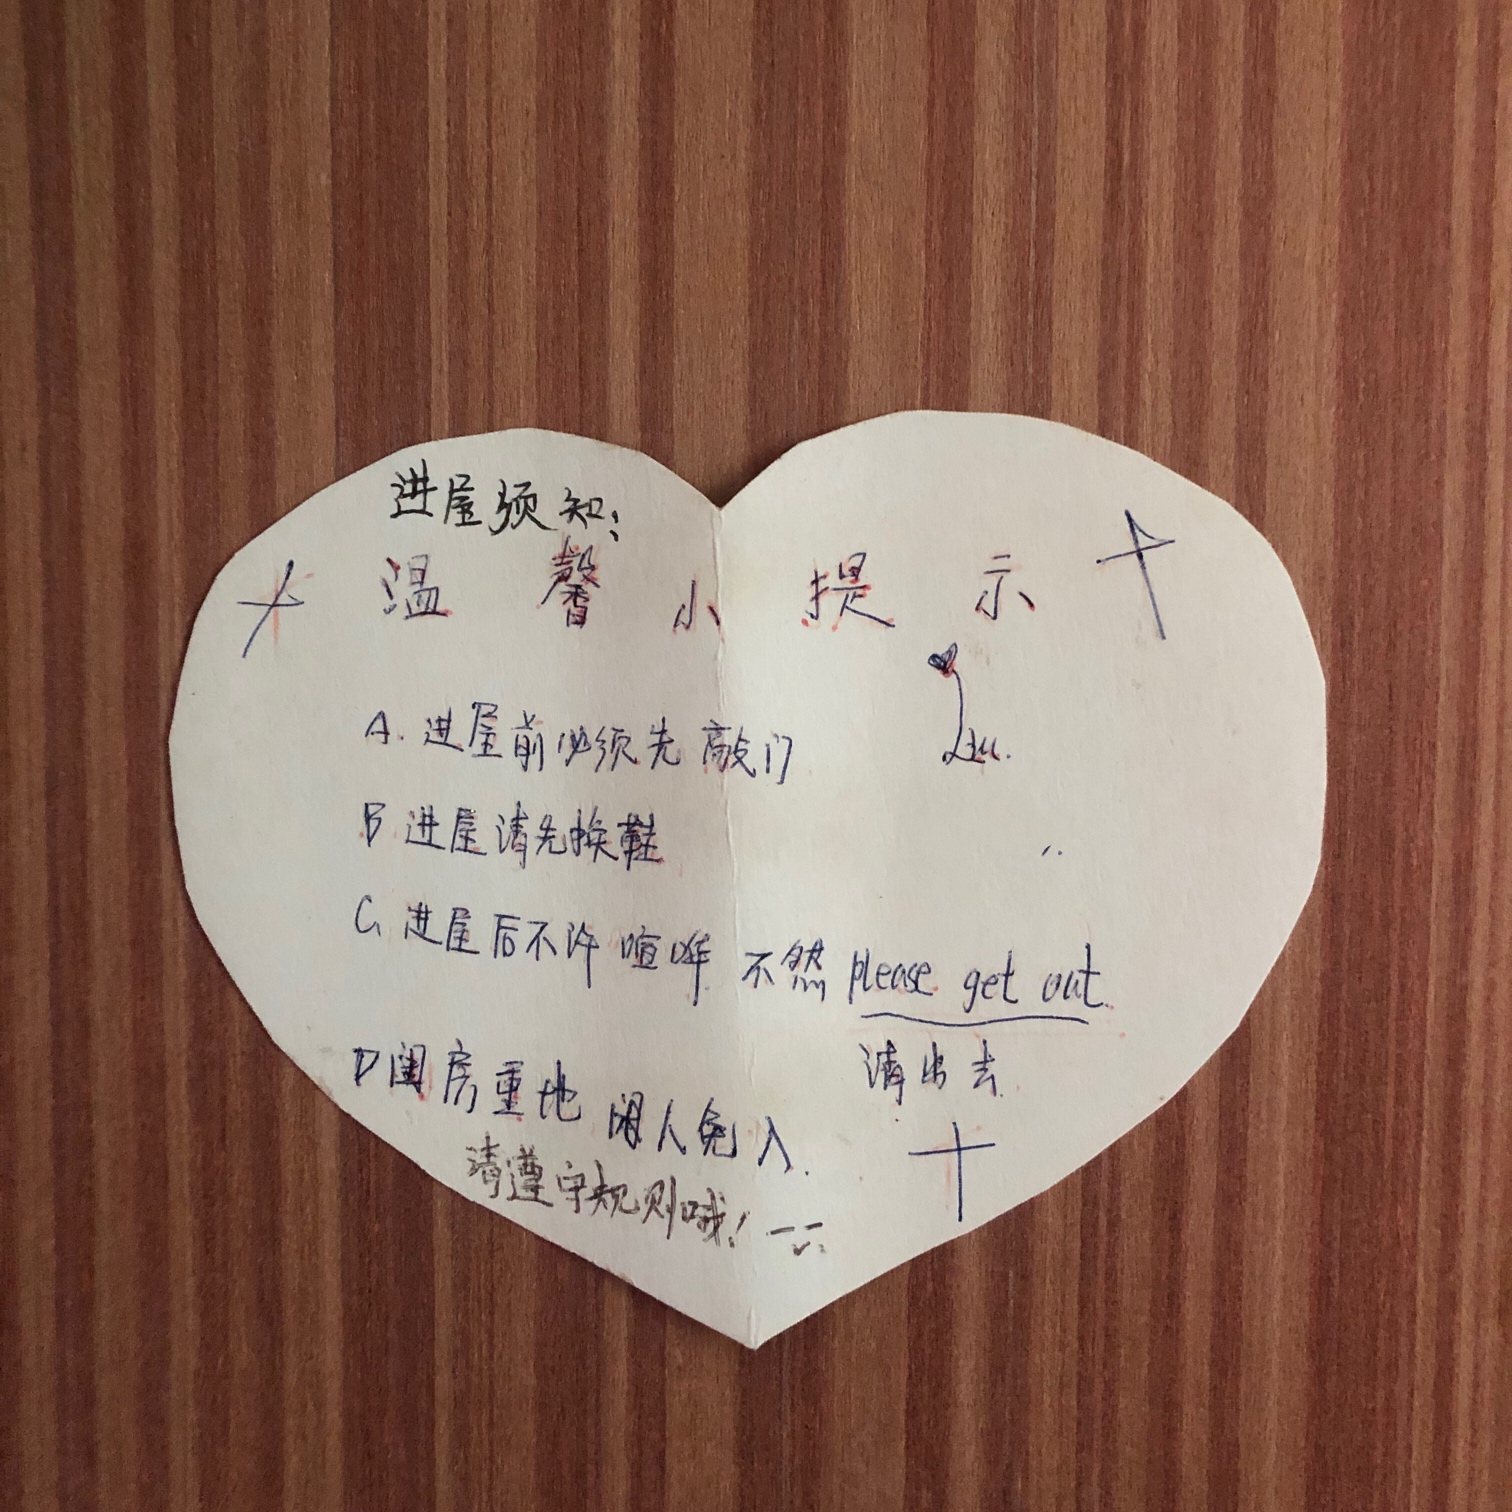 进屋须知:
温馨小提示
A. 进屋前必须先敲门
B 进屋请先换鞋
C. 进屋后不许喧哗 不然 please get out.
请出去
D 闺房重地 闲人免入.
请遵守规则哦!